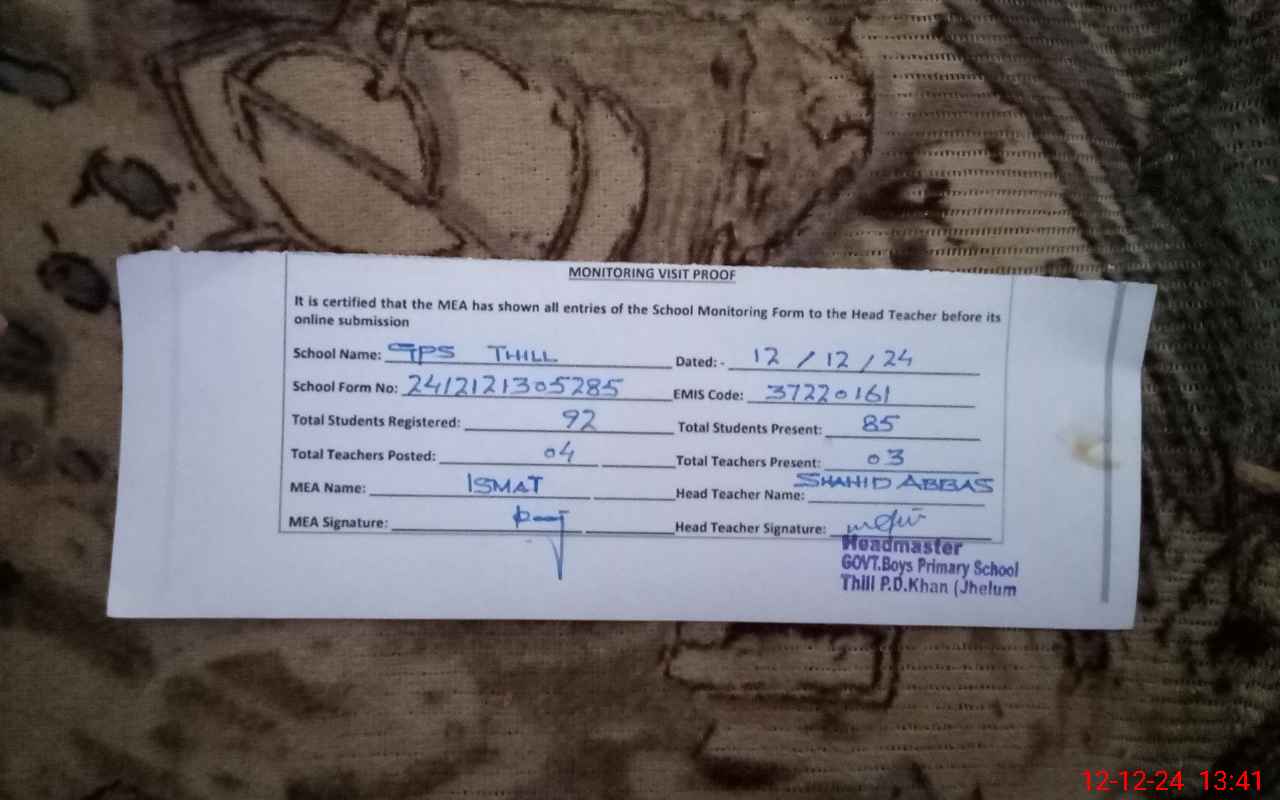 MONITORING VISIT PROOF
It is certified that the MEA has shown all entries of the School Monitoring Form to the Head Teacher before its
online submission
School Name: GPS THILL Dated: - 12 / 12 / 24
School Form No: 2412121305285 EMIS Code: 37220161
Total Students Registered: 92 Total Students Present: 85
Total Teachers Posted: 04 Total Teachers Present: 03
MEA Name: ISMAT Head Teacher Name: SHAHID ABBAS
MEA Signature: Head Teacher Signature:
Headmaster
GOVT.Boys Primary School
Thill P.D.Khan (Jhelum
12-12-24 13:41